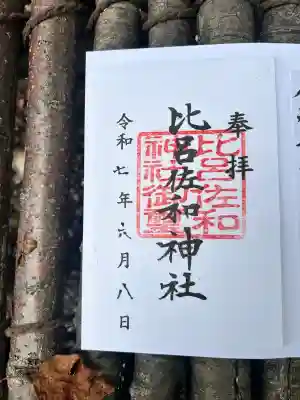 奉拝
比呂佐和神社
令和七年六月八日
比呂佐和
神社御璽